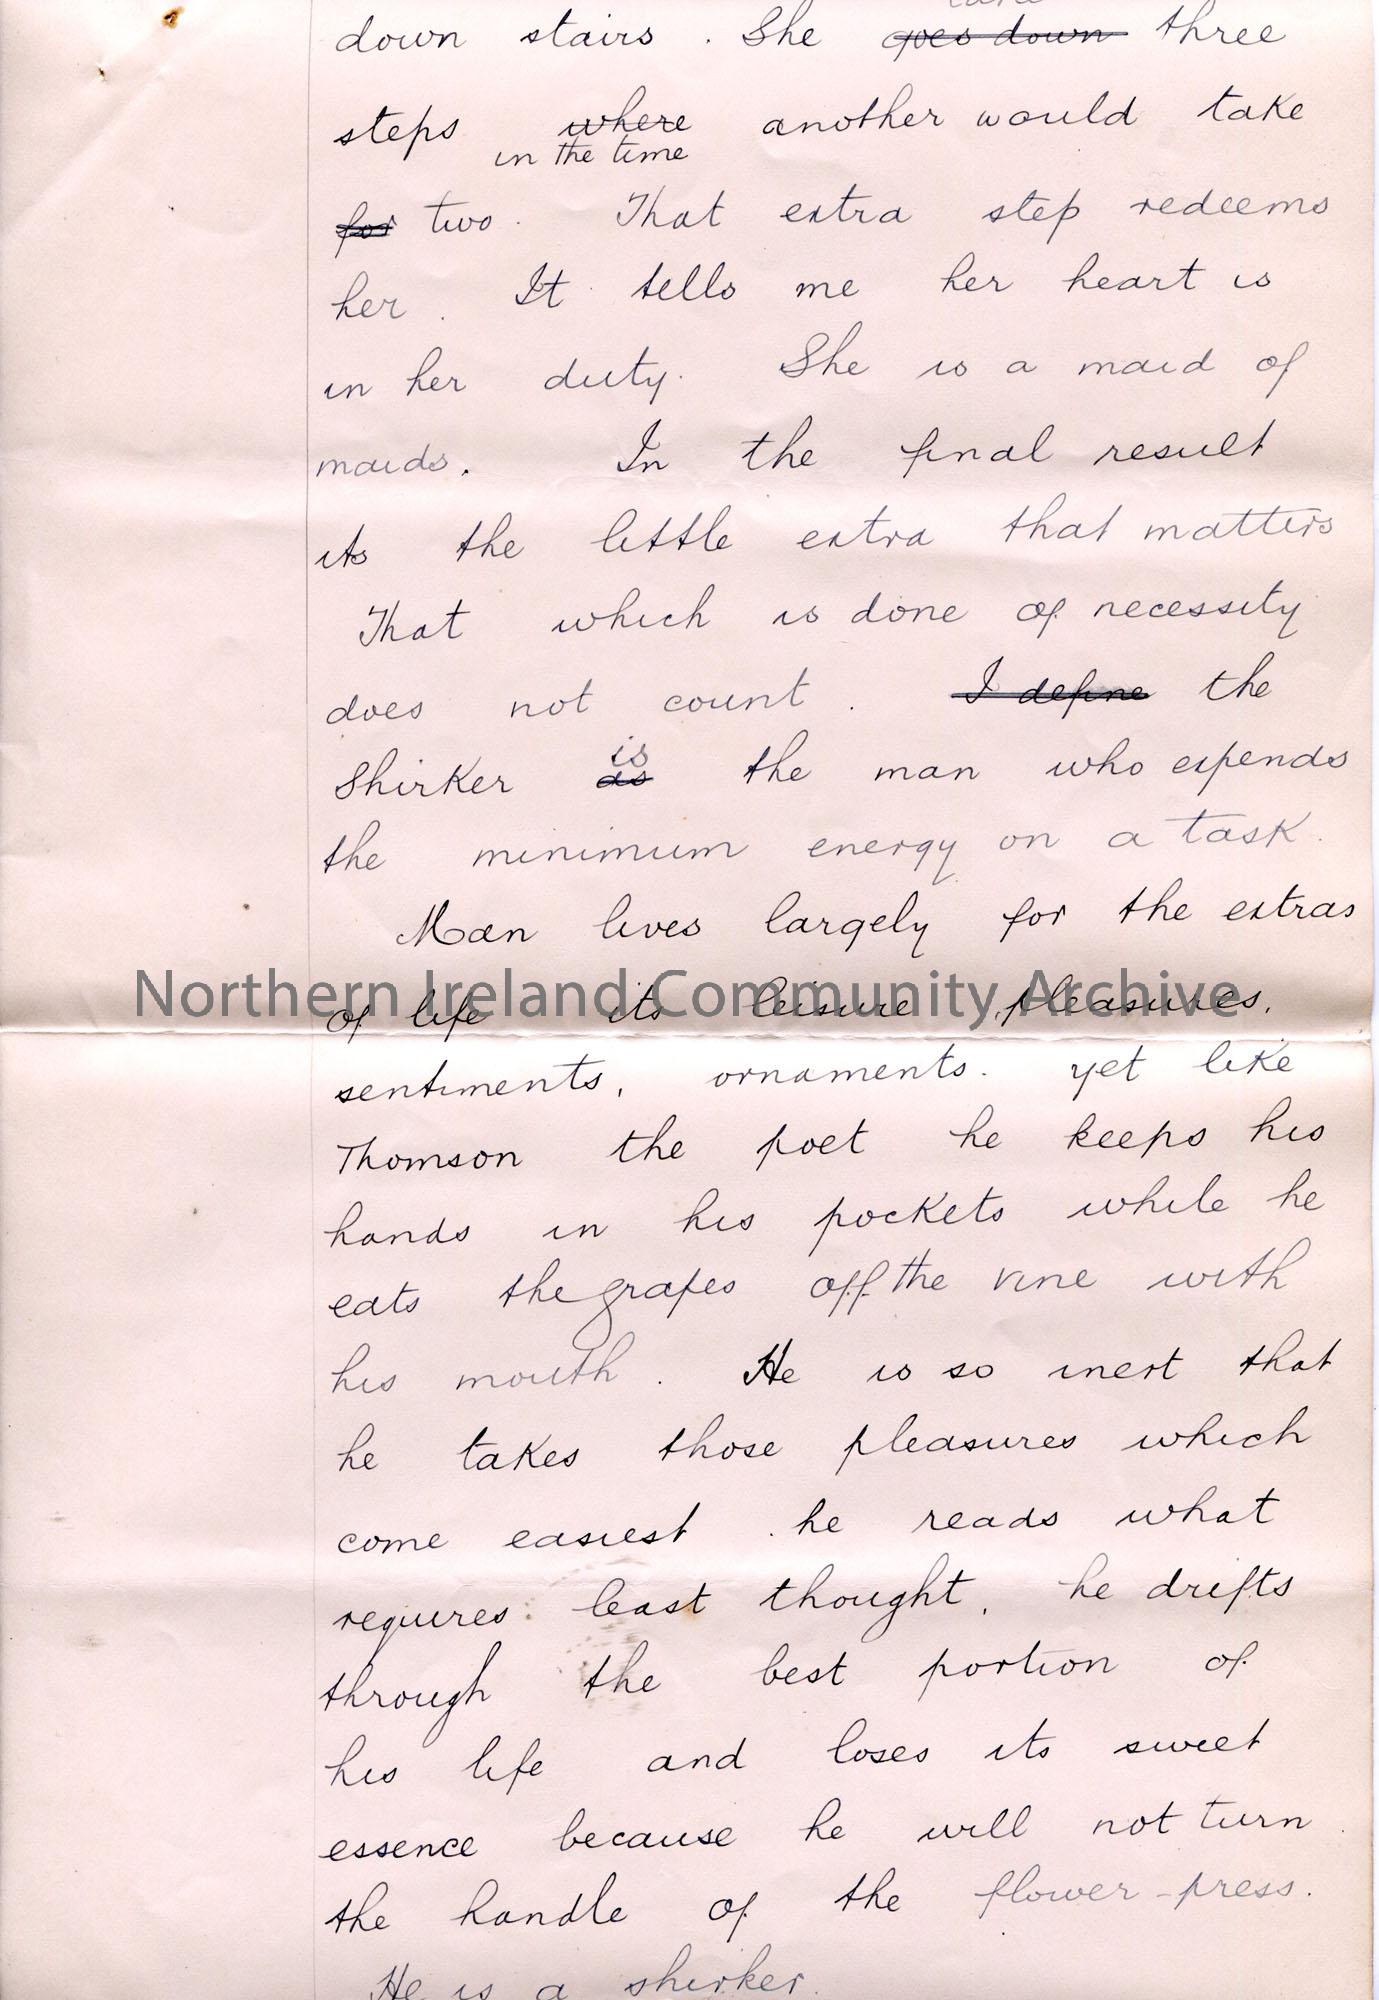 down stairs. She ~~goes down~~ three
steps ~~where~~ another would take
in the time
~~for~~ two. That extra step redeems
her. It tells me her heart is
in her duty. She is a maid of
maids. In the final result
its the little extra that matters
That which is done of necessity
does not count. ~~I define~~ the
is
Shirker ~~as~~ the man who expends
the minimum energy on a task.
Man lives largely for the extras
Northern Ireland Community Archive
of life its leisure, pleasures,
sentiments, ornaments. yet like
Thomson the poet he keeps his
hands in his pockets while he
eats the grapes off the vine with
his mouth. He is so inert that
he takes those pleasures which
come easiest. he reads what
requires least thought, he drifts
through the best portion of
his life and loses its sweet
essence because he will not turn
the handle of the flower-press.
He is a shirker.